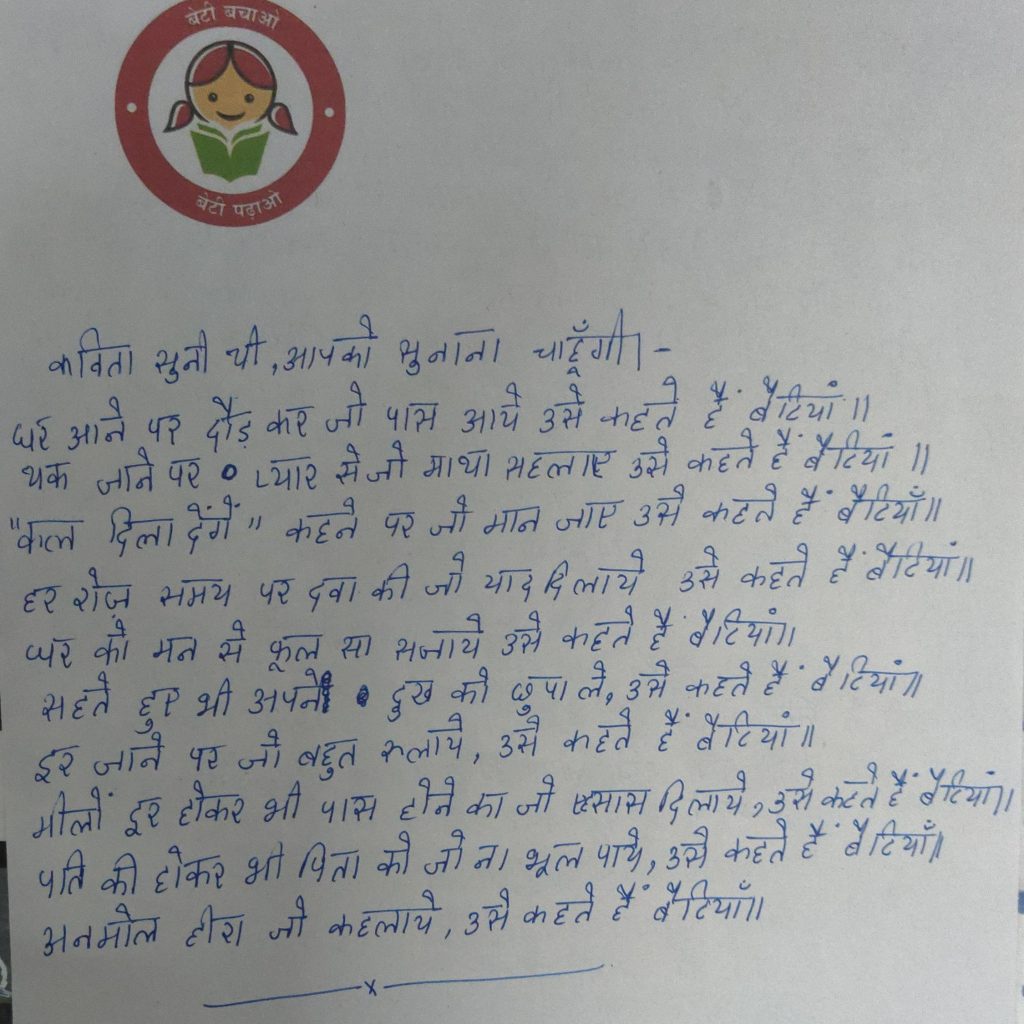 बेटी बचाओ
बेटी पढ़ाओ
कविता सुनी थी, आपको सुनाना चाहूँगी। -
घर आने पर दौड़ कर जो पास आये उसे कहते हैं बैटियां॥
थक जाने पर प्यार से जो माथा सहलाए उसे कहते हैं बैटियां॥
"कल दिला देंगें" कहने पर जो मान जाए उसे कहते हैं बैटियाँ॥
हर रोज़ समय पर दवा की जो याद दिलाये उसे कहते हैं बैटियां॥
घर को मन से फूल सा सजाये उसे कहते हैं बैटियां॥
सहते हुए भी अपने दुख को छुपा ले, उसे कहते हैं बैटियां॥
दूर जाने पर जो बहुत रूलाये, उसे कहते हैं बैटियां॥
मीलों दूर होकर भी पास होने का जो एसास दिलाये, उसे कहते हैं बैटियां॥
पति की होकर भी पिता को जो ना भूल पाये, उसे कहते हैं बैटियाँ॥
अनमोल हीरा जो कहलाये, उसे कहते हैं बैटियाँ॥
x